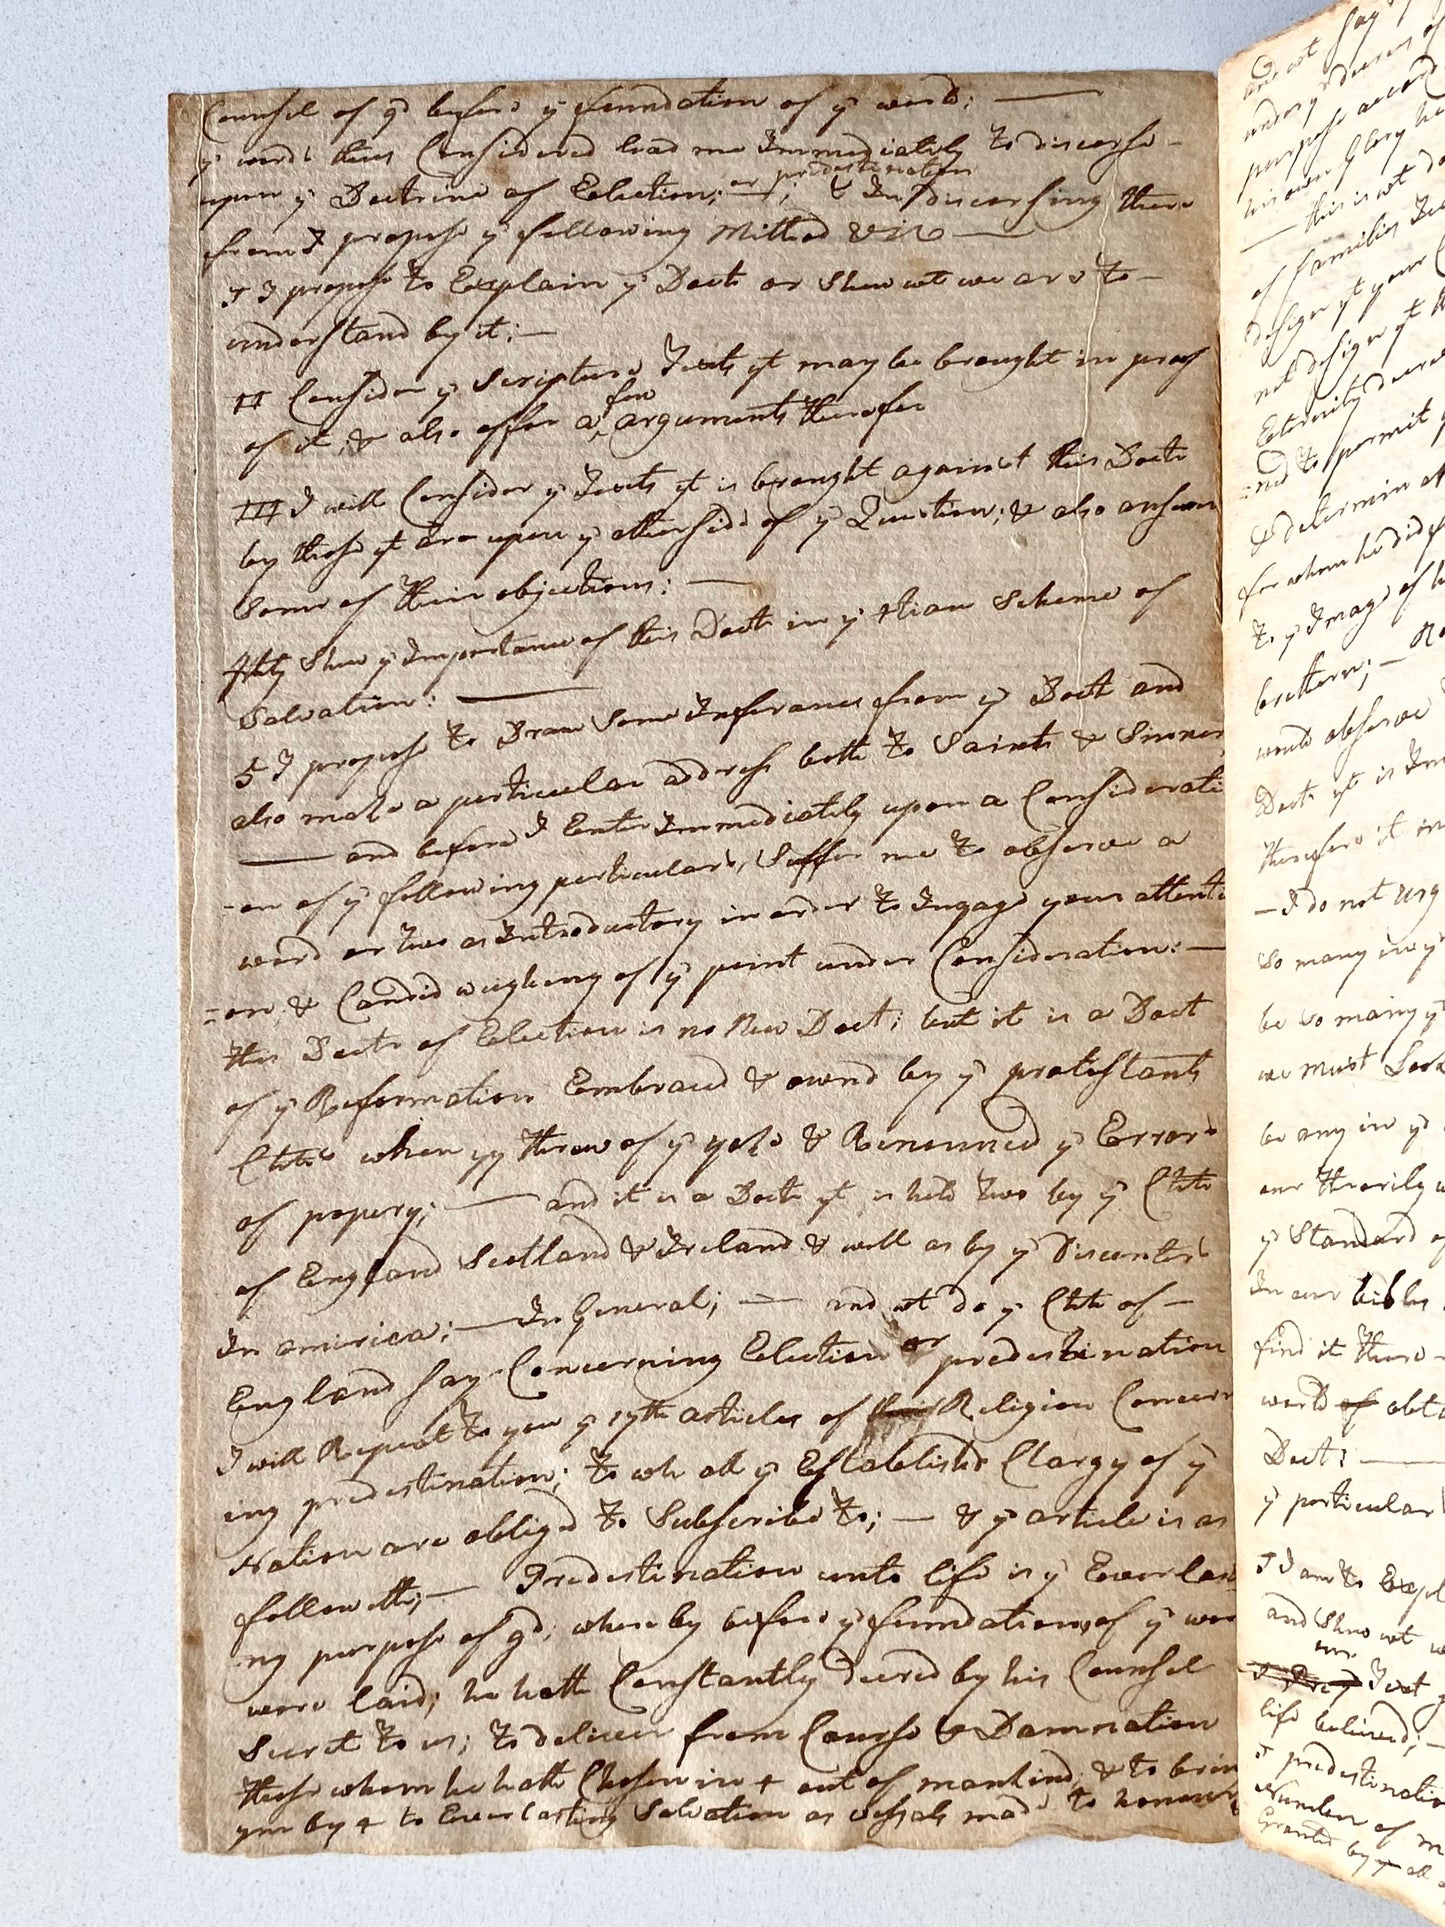 Counsel of gd before ye foundation of ye world; —
ye words thus Considered lead me Immediately to discorse -
upon ye Doctrine of Election; or predestination; & In discorsing there
from I propose ye following Mithod viz —
I I propose to Explain ye Doct or Shew wt we are to -
understand by it: —
II Consider ye Scripture Texts yt may be brought in proof
of it; & also offer a few arguments therefor
III I will Consider ye Texts yt is brought against this Doct
by those yt are upon ye otherside of ye Question; & also answer
Some of their objections: —
4thly Shew ye Importance of this Doct in ye +tian Scheme of
Salvation: —
5 I propose to Draw Some Inferances from ye Doct and
also make a perticular address both to Saints & Sinners
— and before I Enter Immediately upon a Considerati
-on of ye following perticulars, Suffer me to observe a
word or two as Introductory in order to Ingage your attenti
=on; & Candid weighing of ye point under Consideration: —
this Doct of Election is no New Doct; but it is a Doct
of ye Reformation Embraced & ownd by ye protestants
Chhs when yy threw of ye yoke & Renounced ye Errors
of popery; — and it is a Doct yt is held two by ye Chh
of England Scotland & Ireland & well as by ye Discenters
In america; — In General; — and wt do ye Chh of —
England Say Concerning Election or predestination
I will Repeat to you ye 17th articles of Religion Concern
ing predestination; to wh all ye Established Clargy of ye
Nation are obliged to Subscribe to; — & ye article is as
followeth; — Predestination unto life is ye Everlas
ng purpose of gd, whereby before ye foundations of ye wor
were laid; he hath Constantly decred by his Counsel
Secret to us; to deliver from Course & Damnation
those whom he hath Chosen in + out of mankind; & to brin
ym by + to Everlasting Salvation as vessals made to honour
and wt Say
under ye decrees of
purpose accord
his own Glory he
— this is not
of families
design yt your
not design yt
Eternity decree
=ned to permit
& determin
for whom he did
to ye Image of h
bretheren; —
would observe
Doct yt is Im
therefore it
— I do not urg
So many in ye
be so many yt
we must Look
be any in ye
our
ye Standard of
In our bibles
find it there
world of
Doct: —
ye perticular
I I am to Expl
and Shew wt w
our
Text
life believed; —
I predestinatio
Number of m
Granted by all